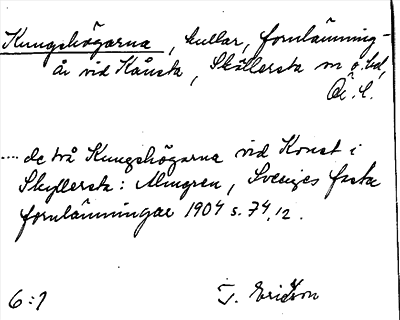 Kungshögarna, kullar, fornlämning-
ar vid Kånsta, Sköllersta sn o. hd,
Ör. l.
.... de två Kungshögarna vid Konst i
Skyllersta: Almgren, Sveriges fasta
fornlämningar 1904 s. 74, 12.
6:1
T. Ericsson